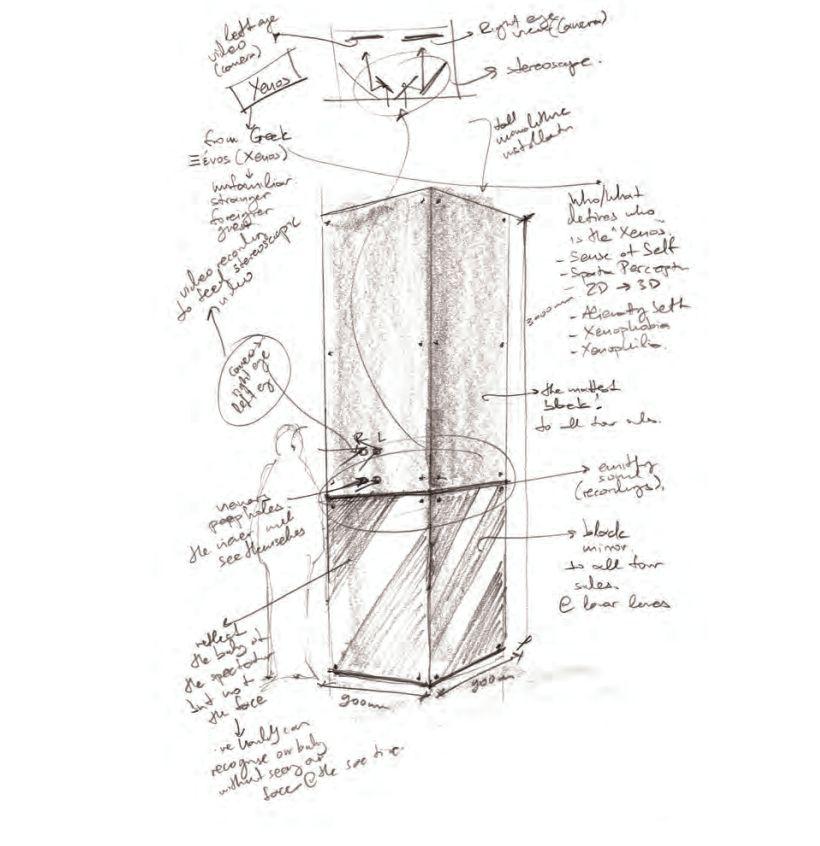 Left eye
video
(camera)
Right eye
view (camera)
stereoscope.
Xenos
from Greek
Ξένος (Xenos)
unfamiliar
stranger
foreigner
guest
video recording
to feed stereoscopic
video
tall
monolithic
installation
Who/What
defines who
is the "Xenos"
- Sense of Self
- Spatial Perception
- 2D → 3D
- Alienating Self
- Xenophobia
- Xenophilia.
3000mm
camera
right eye
left eye
R L
the mattest
black!
to all four sides.
emitting
sound
(recordings).
viewers
peepholes.
the viewer will
see themselves
black
mirror
to all four
sides.
@ lower level
reflect
the body of
the spectator
but not
the face
900mm
900mm
we hardly can
recognise our body
without seeing our
face @ the same time.